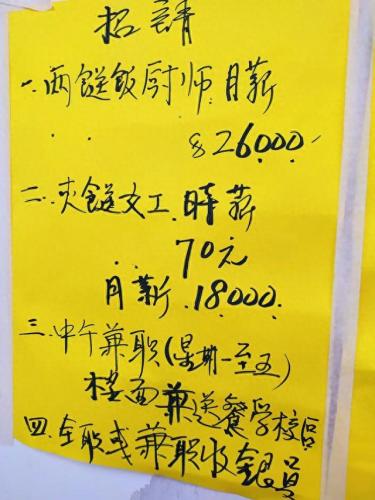 招請
一.两餸飯厨师.月薪
$26000
二.夹餸女工.時薪
70元
月薪.18000.
三.中午兼职(星期一至五)
楼面兼送餐学校店
四.全职或兼职收銀員